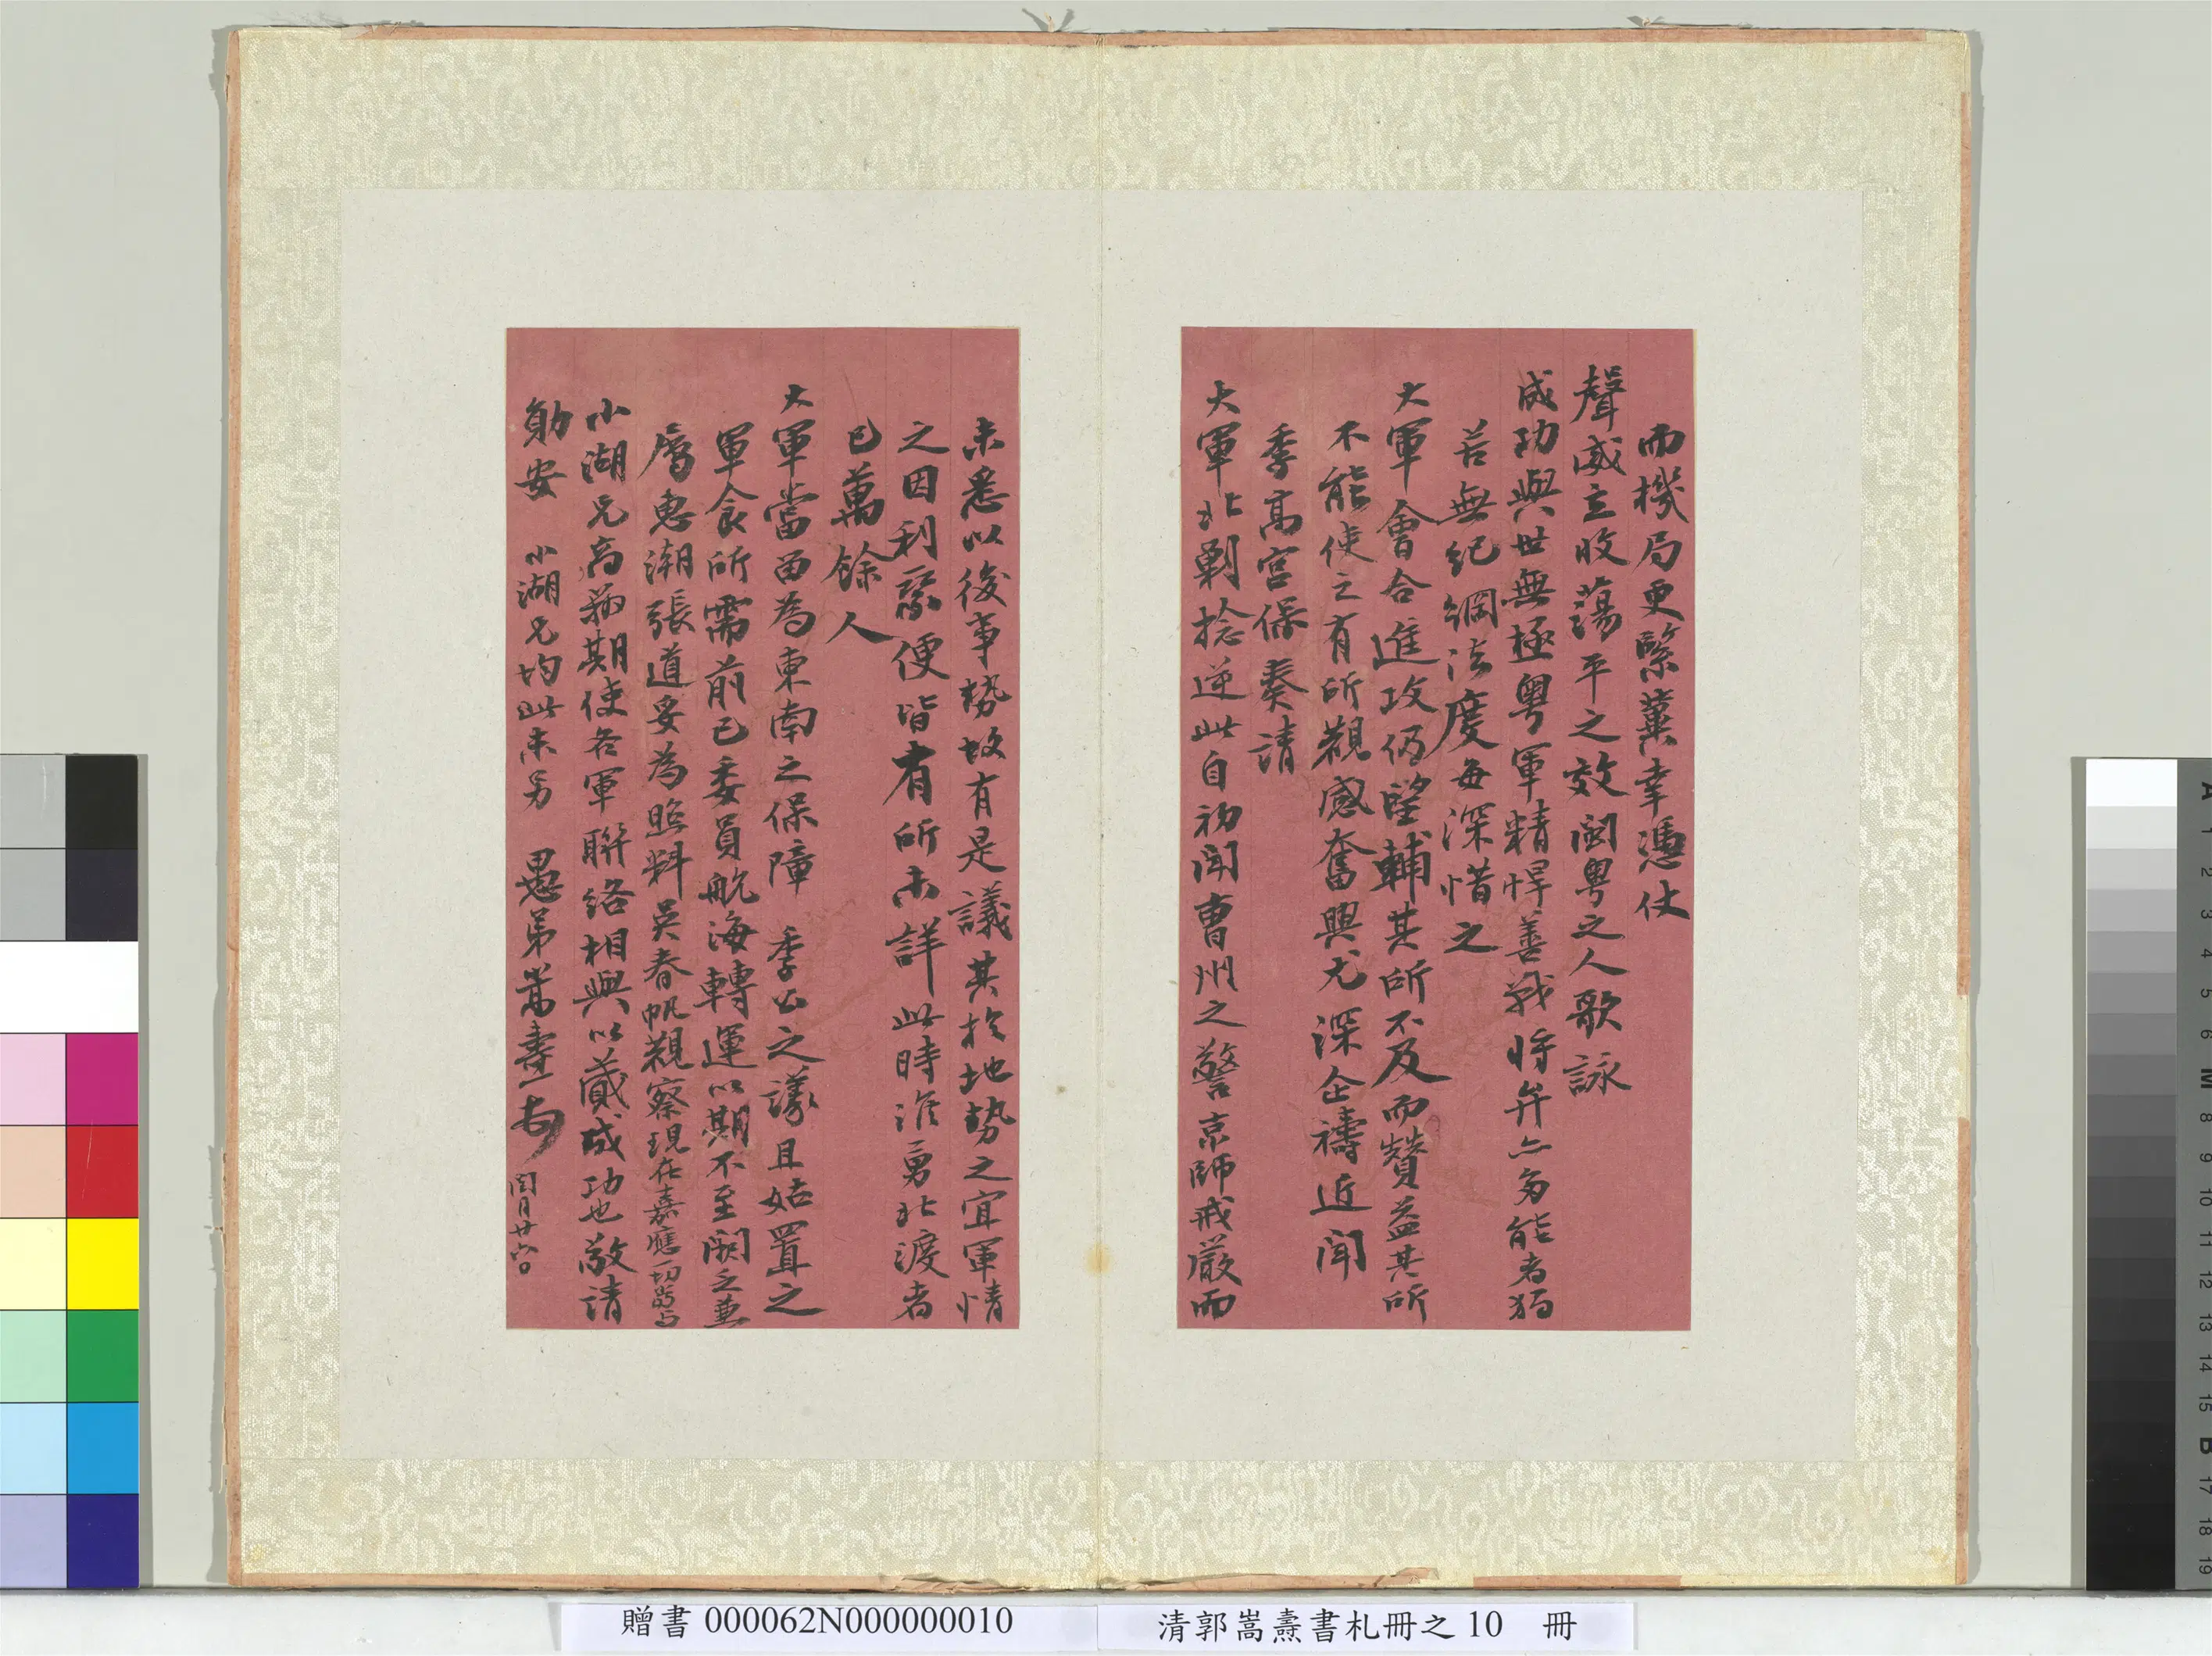 而機局更緊冀幸憑仗
聲威立收蕩平之效閩粵之人歌詠
成功與世無極粵軍精悍善戰將弁亦多能者獨
苦無紀綱法度每深惜之
大軍會合進攻仍望輔其所不及而贊益其所
不能使之有所觀感奮興尤深企禱近聞
季高宮保奏請
大軍北剿捻逆此自初聞曹州之警京師戒嚴而
未悉以後事勢故有是議其於地勢之宜軍情
之因利乘便皆有所未詳此時淮勇北渡者
已萬餘人
大軍當留為東南之保障 季公之議且姑置之
軍食所需前已委員航海轉運以期不至闕乏並
屬惠潮張道妥為照料吳春帆觀察現在嘉應一切當與
小湖兄商籌期使各軍聯絡相與以蕆成功也敬請
勛安 小湖兄均此未另 愚弟嵩燾頓首 閏月廿六日
贈書 000062N000000010
清郭嵩燾書札冊之 10 冊